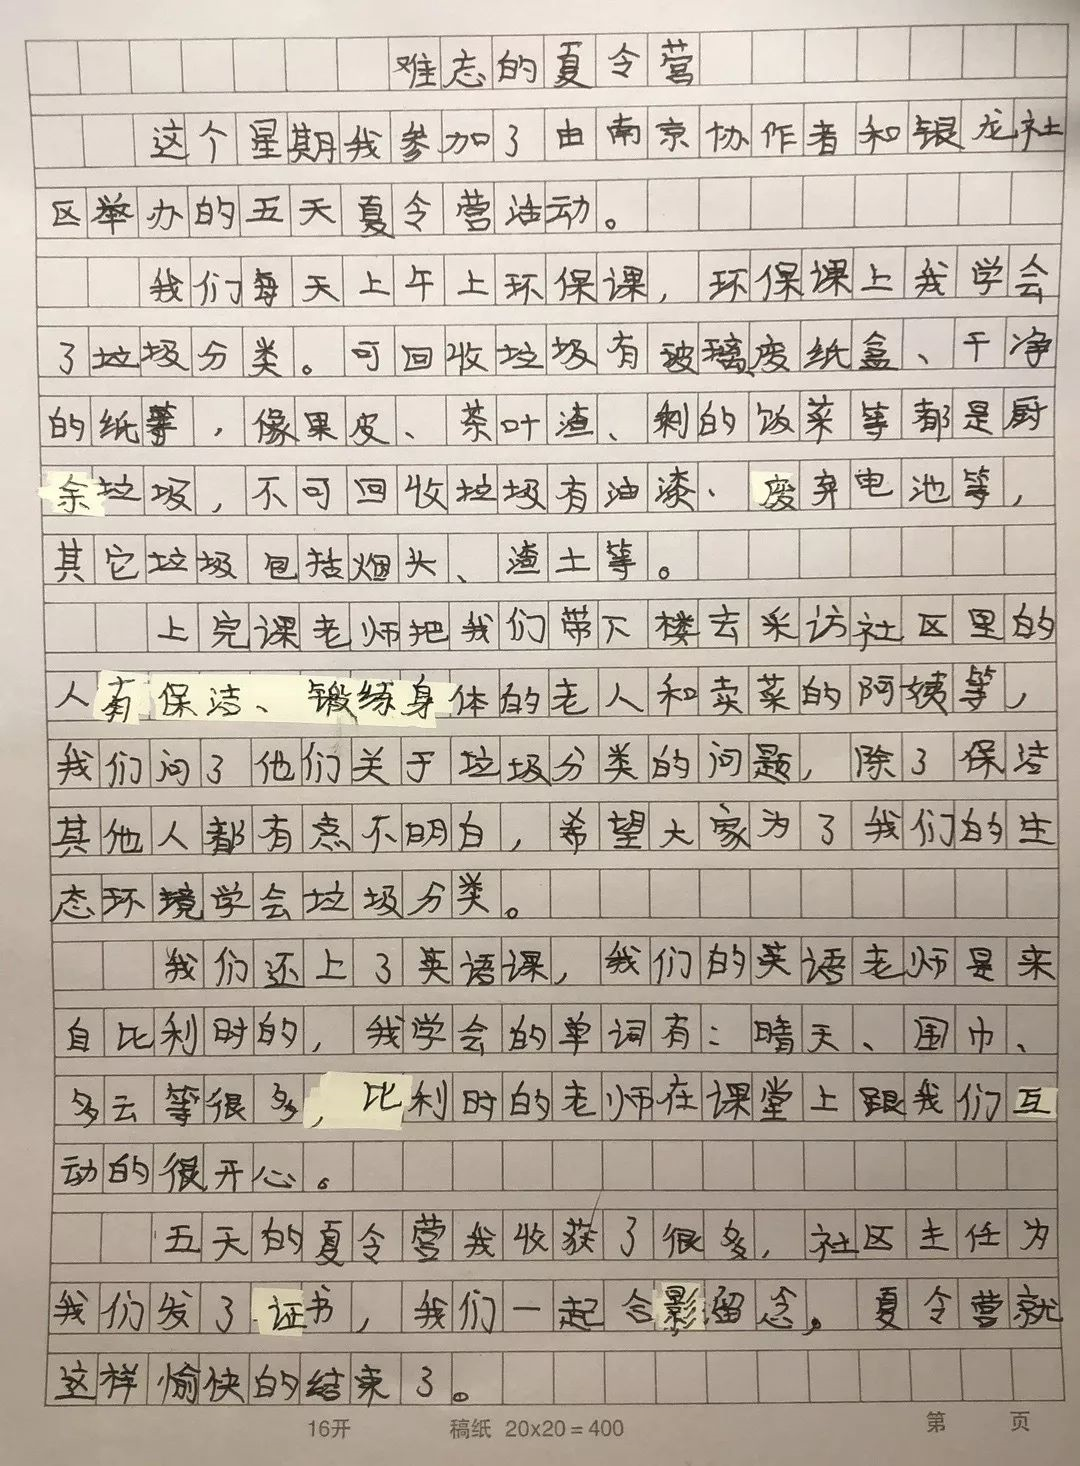 难忘的夏令营
这个星期我参加了由南京协作者和银龙社
区举办的五天夏令营活动。
我们每天上午上环保课，环保课上我学会
了垃圾分类。可回收垃圾有玻璃、废纸盒、干净
的纸等，像果皮、茶叶渣、剩的饭菜等都是厨
余垃圾，不可回收垃圾有油漆、废弃电池等，
其它垃圾包括烟头、渣土等。
上完课老师把我们带下楼去采访社区里的
人有保洁、锻练身体的老人和卖菜的阿姨等，
我们问了他们关于垃圾分类的问题，除了保洁
其他人都有点不明白，希望大家为了我们的生
态环境学会垃圾分类。
我们还上了英语课，我们的英语老师是来
自比利时的，我学会的单词有：晴天、围巾、
多云等很多，比利时的老师在课堂上跟我们互
动的很开心。
五天的夏令营我收获了很多，社区主任为
我们发了证书，我们一起合影留念。夏令营就
这样愉快的结束了。
16开 稿纸 20x20=400 第 页